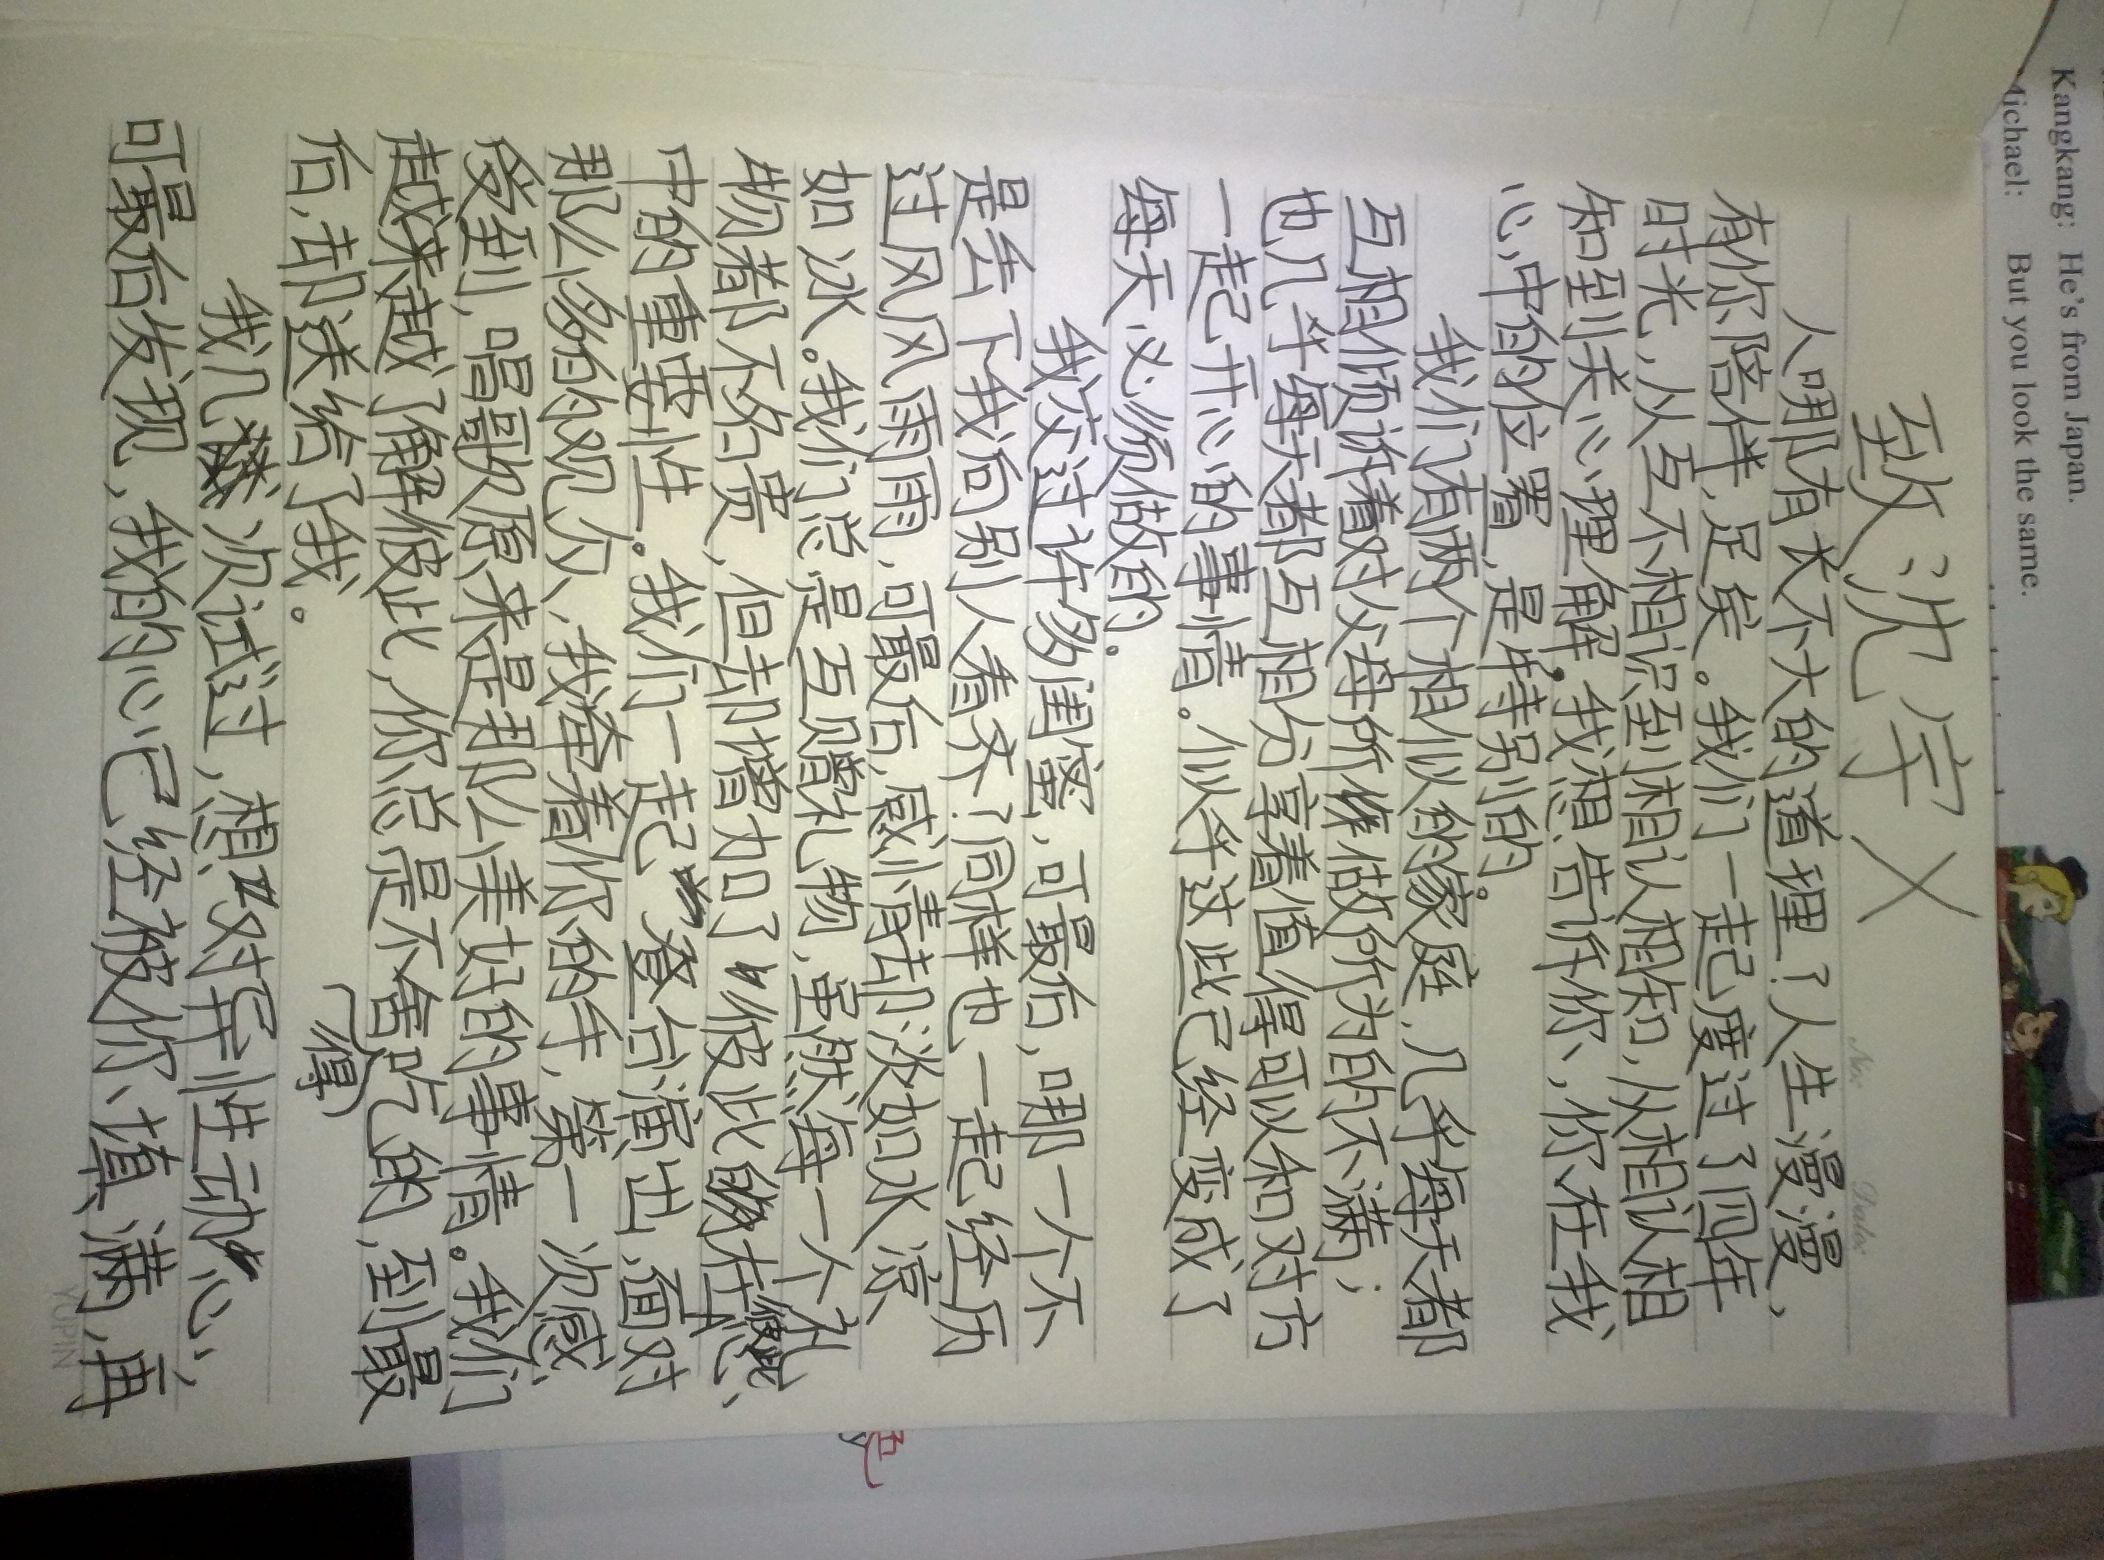 Kangkang: He's from Japan.
Michael: But you look the same.
致沈宇乂
No:
Date:
人哪有长不大的道理？人生漫漫，
有你陪伴，足矣。我们一起度过了四年
时光，从互不相识到相认相知，从相认相
知到关心理解。我想告诉你，你在我
心中的位置，是特别的。
我们有两个相似的家庭，几乎每天都
互相倾诉着对父母所做所为的不满；
也几乎每天都互相分享着值得可以和对方
一起开心的事情。似乎这些已经变成了
每天必须做的。
我交过许多闺蜜，可最后，哪一个不
是丢下我向别人看齐？同样也一起经历
过风风雨雨，可最后，感情却淡如水凉
如冰。我们总是互赠礼物，虽然每一个礼
物都不名贵，但却增加了彼此在彼此心
中的重要性。我们一起登台演出，面对
那么多的观众，我牵着你的手，第一次感
受到，唱歌原来是那么美好的事情。我们
越来越了解彼此，你总是不舍(得)吃的，到最
后，却送给了我。
我几次试过，想对异性动心，
可最后发现，我的心已经被你填满，再
YUPIN